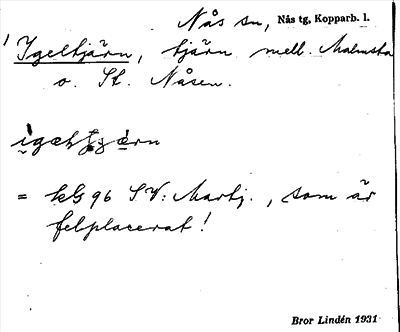 Nås sn, Nås tg, Kopparb. l.
Igeltjärn, tjärn mell. Malmsta
o. St. Nåsen.
= kbg 96 SV: Martj., som är
felplacerat!
Bror Lindén 1931